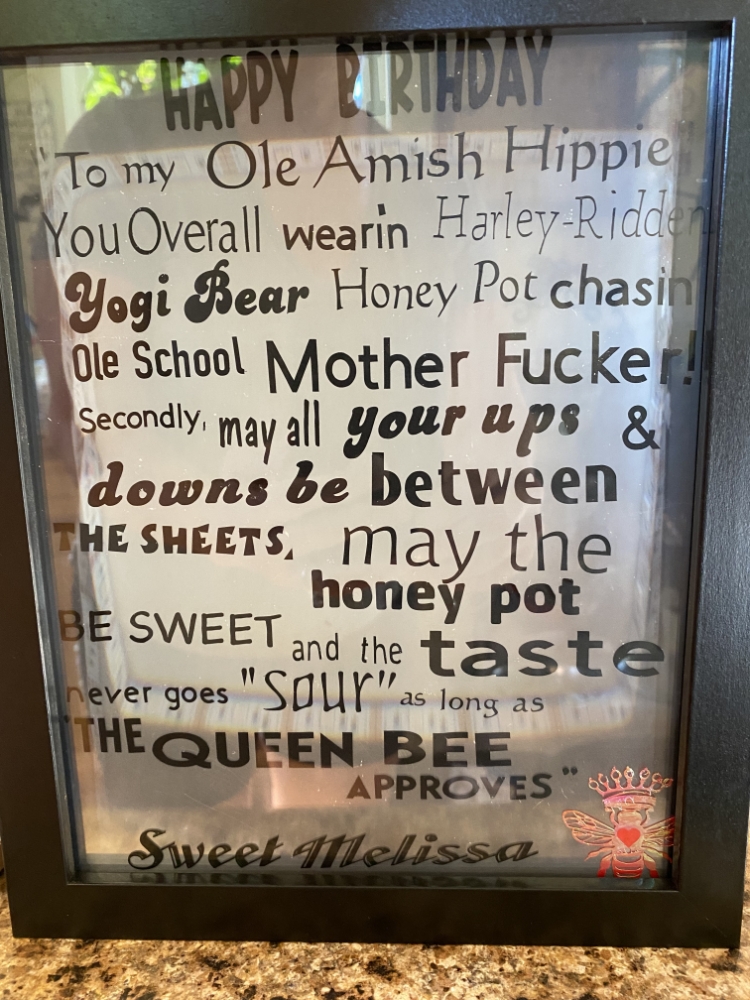 HAPPY BIRTHDAY
"To my Ole Amish Hippie"
You Overall wearin Harley-Ridden
Yogi Bear Honey Pot chasin
Ole School Mother Fucker!
Secondly, may all your ups &
downs be between
THE SHEETS, may the
honey pot
BE SWEET and the taste
never goes "SOUR" as long as
"THE QUEEN BEE
APPROVES"
Sweet Melissa